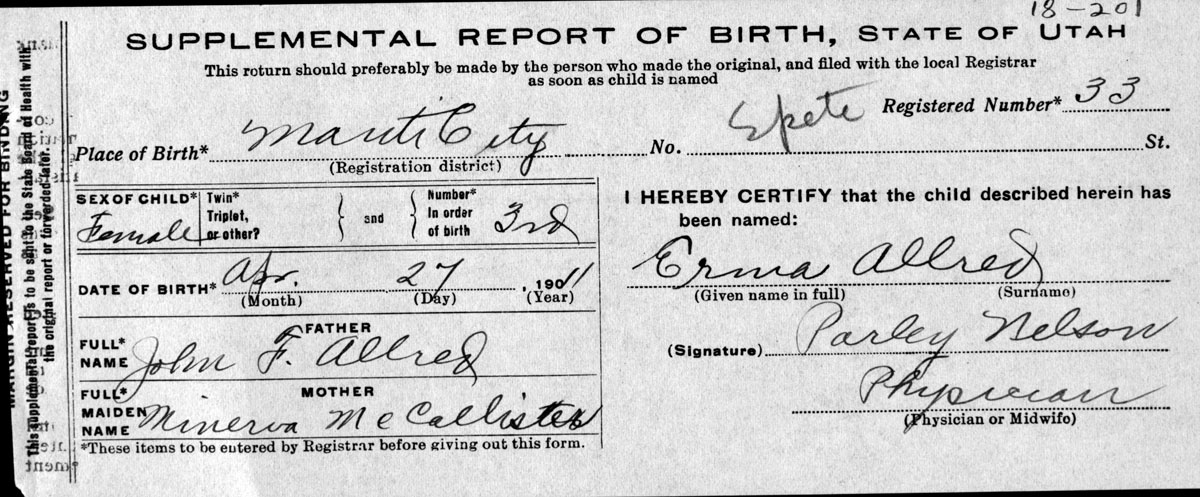 18-201
SUPPLEMENTAL REPORT OF BIRTH, STATE OF UTAH
This return should preferably be made by the person who made the original, and filed with the local Registrar
as soon as child is named
Spete Registered Number* 33
Place of Birth* Manti City No. St.
(Registration district)
SEX OF CHILD* Female
Twin*
Triplet,
or other?
and
Number*
In order
of birth 3rd
DATE OF BIRTH* Apr. 27, 1911
(Month) (Day) (Year)
FATHER
FULL*
NAME John F. Allred
MOTHER
FULL*
MAIDEN
NAME Minerva McCallister
*These items to be entered by Registrar before giving out this form.
I HEREBY CERTIFY that the child described herein has
been named:
Erma Allred
(Given name in full) (Surname)
(Signature) Parley Nelson
Physician
(Physician or Midwife)
MARGIN RESERVED FOR BINDING
This supplemental report is to be sent to the State Board of Health with
the original report or forwarded later.